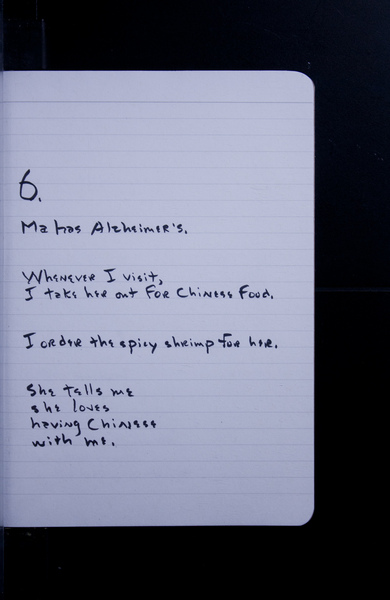 6.
Ma has Alzheimer's.
Whenever I visit,
I take her out for Chinese Food.
I order the spicy shrimp for her.
She tells me
she loves
having Chinese
with me.